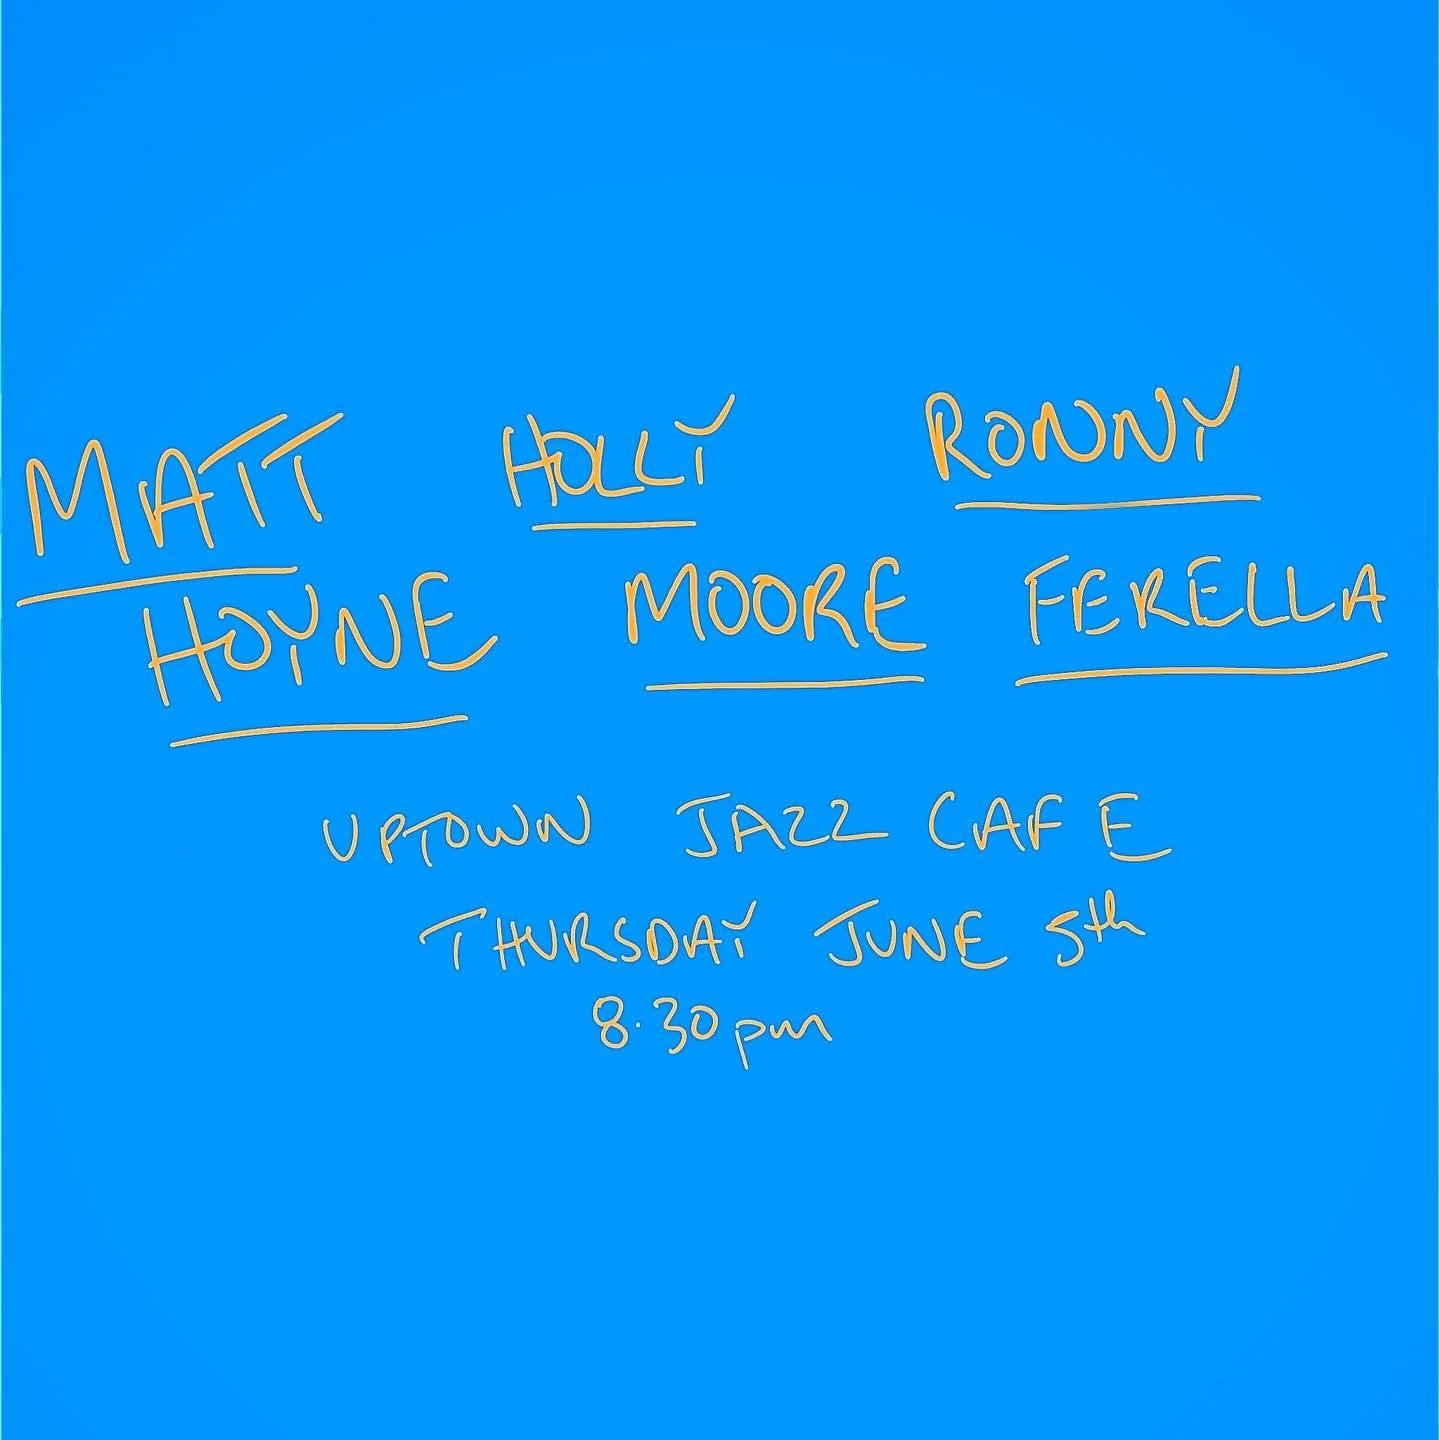 MATT HOLLY RONNY
HOYNE MOORE FERELLA
UPTOWN JAZZ CAFE
THURSDAY JUNE 5th
8.30pm